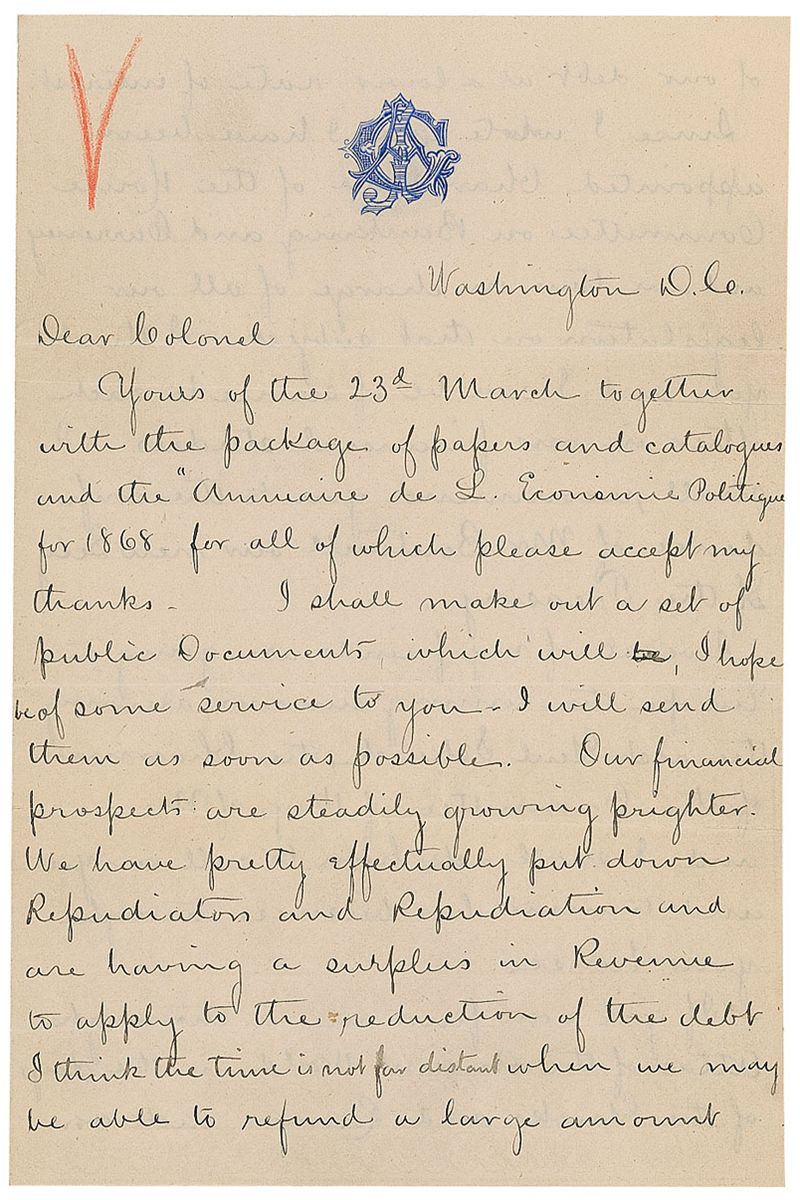 Washington D.C.
Dear Colonel
Yours of the 23d March together
with the package of papers and catalogues
and the "Annuaire de L. Économie Politique
for 1868 for all of which please accept my
thanks - I shall make out a set of
public Documents, which will be, I hope
be of some service to you - I will send
them as soon as possible. Our financial
prospects are steadily growing prighter.
We have pretty effectually put down
Repudiators and Repudiation and
are having a surplus in Revenue
to apply to the reduction of the debt
I think the time is not far distant when we may
be able to refund a large amount